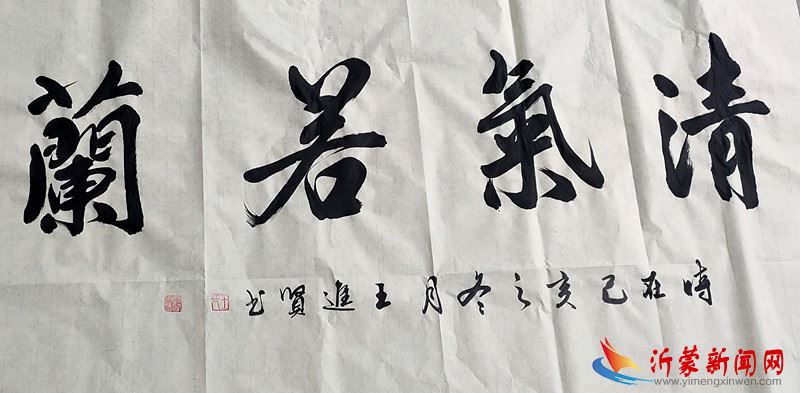 清氣若蘭
時在己亥之冬月王進賢书
沂蒙新闻网
www.yimengxinwen.com